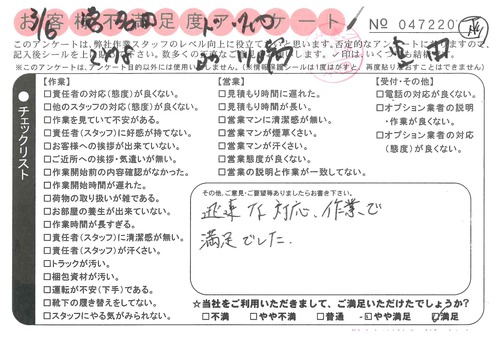 お客様不満足度アンケート
No 047220
3/6
このアンケートは、弊社作業スタッフのレベル向上に役立て
記入後シールを上
※このアンケートは、アンケート目的以外には使用いたしません。（※情報保護シールは1度はがすと、再度貼りなおすことはできません）
チェックリスト
【作業】
□責任者の対応（態度）が良くない。
□他のスタッフの対応（態度）が良くない。
□作業を見ていて不安がある。
□責任者（スタッフ）に好感が持てない。
□お客様への挨拶が出来ていない。
□ご近所への挨拶・気遣いが無い。
□作業開始前の内容確認がなかった。
□作業開始時間が遅れた。
□荷物の取り扱いが雑である。
□お部屋の養生が出来ていない。
□作業時間が長すぎる。
□責任者（スタッフ）に清潔感が無い。
□責任者（スタッフ）が汗くさい。
□トラックが汚い。
□梱包資材が汚い。
□運転が不安（下手）である。
□靴下の履き替えをしてない。
□スタッフにやる気がみられない。
【営業】
□見積もり時間に遅れた。
□見積もり時間が長い。
□営業マンに清潔感が無い。
□営業マンが煙草くさい。
□営業マンが汗くさい。
□営業態度が良くない。
□営業の説明と作業が一致してない。
【受付・その他】
□電話の対応が良くない。
□オプション業者の説明
・作業が良くない。
□オプション業者の対応
（態度）が良くない。
その他、ご意見・ご要望等ありましたらお書き下さい。
迅速な対応、作業で
満足でした。
☆当社をご利用いただきまして、ご満足いただけたでしょうか？
□不満 □やや不満 □普通 □やや満足 □満足